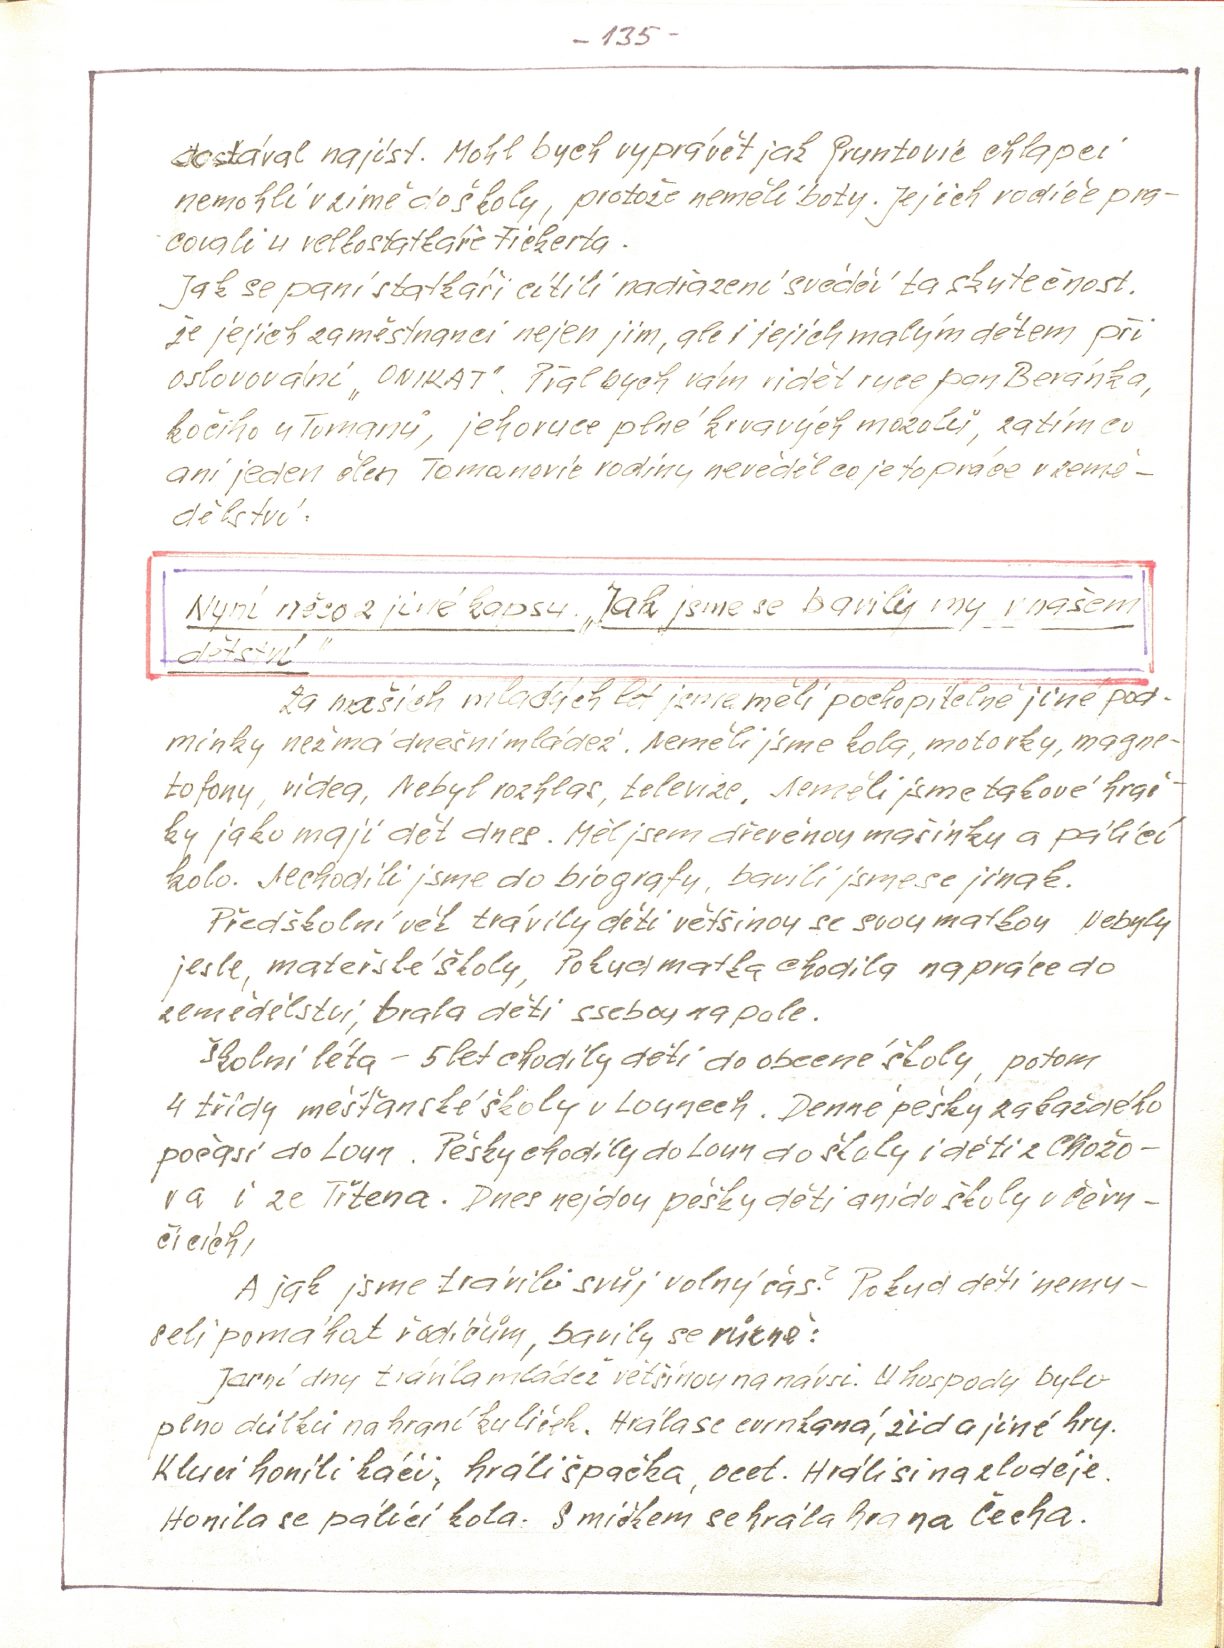 - 135 -
dostával najíst. Mohl bych vyprávět jak Gruntovic chlapci
nemohli v zimě do školy, protože neměli boty. Jejich rodiče pra-
covali u velkostatkáře Fickerta.
Jak se paní statkáři cítili nadřazení svědčí ta skutečnost.
že jejich zaměstnanci nejen jim, ale i jejich malým dětem při
oslovování „ONIKAT". Přál bych vám vidět ruce pan Beránka,
kočího u Tomanů, jeho ruce plné krvavých mozolů, zatím co
ani jeden člen Tomanovic rodiny nevěděl co je to práce v země-
dělství.
Nyní něco z jiné kapsy. „Jak jsme se bavily my v našem
dětství"
Za našich mladých let jsme měli pochopitelně jiné pod-
mínky než má dnešní mládež. Neměli jsme kola, motorky, magne-
tofony, videa, Nebyl rozhlas, televize. Neměli jsme takové hrač-
ky jako mají dět dnes. Měl jsem dřevěnou mašinku a pálící
kolo. Nechodili jsme do biografu, bavili jsme se jinak.
Předškolní věk trávily děti většinou se svou matkou Nebyly
jesle, mateřské školy, Pokud matka chodila na práce do
zemědělství, brala děti ssebou na pole.
Školní léta - 5 let chodily děti do obecné školy, potom
4 třídy měšťanské školy v Lounech. Denně pěšky za každého
počasí do Loun. Pěšky chodily do Loun do školy i děti z Chožo-
va i ze Třtena. Dnes nejdou pěšky děti ani do školy v Čern-
čicích,
A jak jsme trávili svůj volný čas? Pokud děti nemu-
seli pomáhat rodičům, bavily se různě:
Jarní dny trávila mládež většinou na návsi. U hospody bylo
plno důlků na hraní kuliček. Hrála se cvrnkaná, žid a jiné hry.
Kluci honili káči, hráli špačka, ocet. Hráli si na zloděje.
Honila se pálící kola. S míčkem se hrála hra na Čecha.